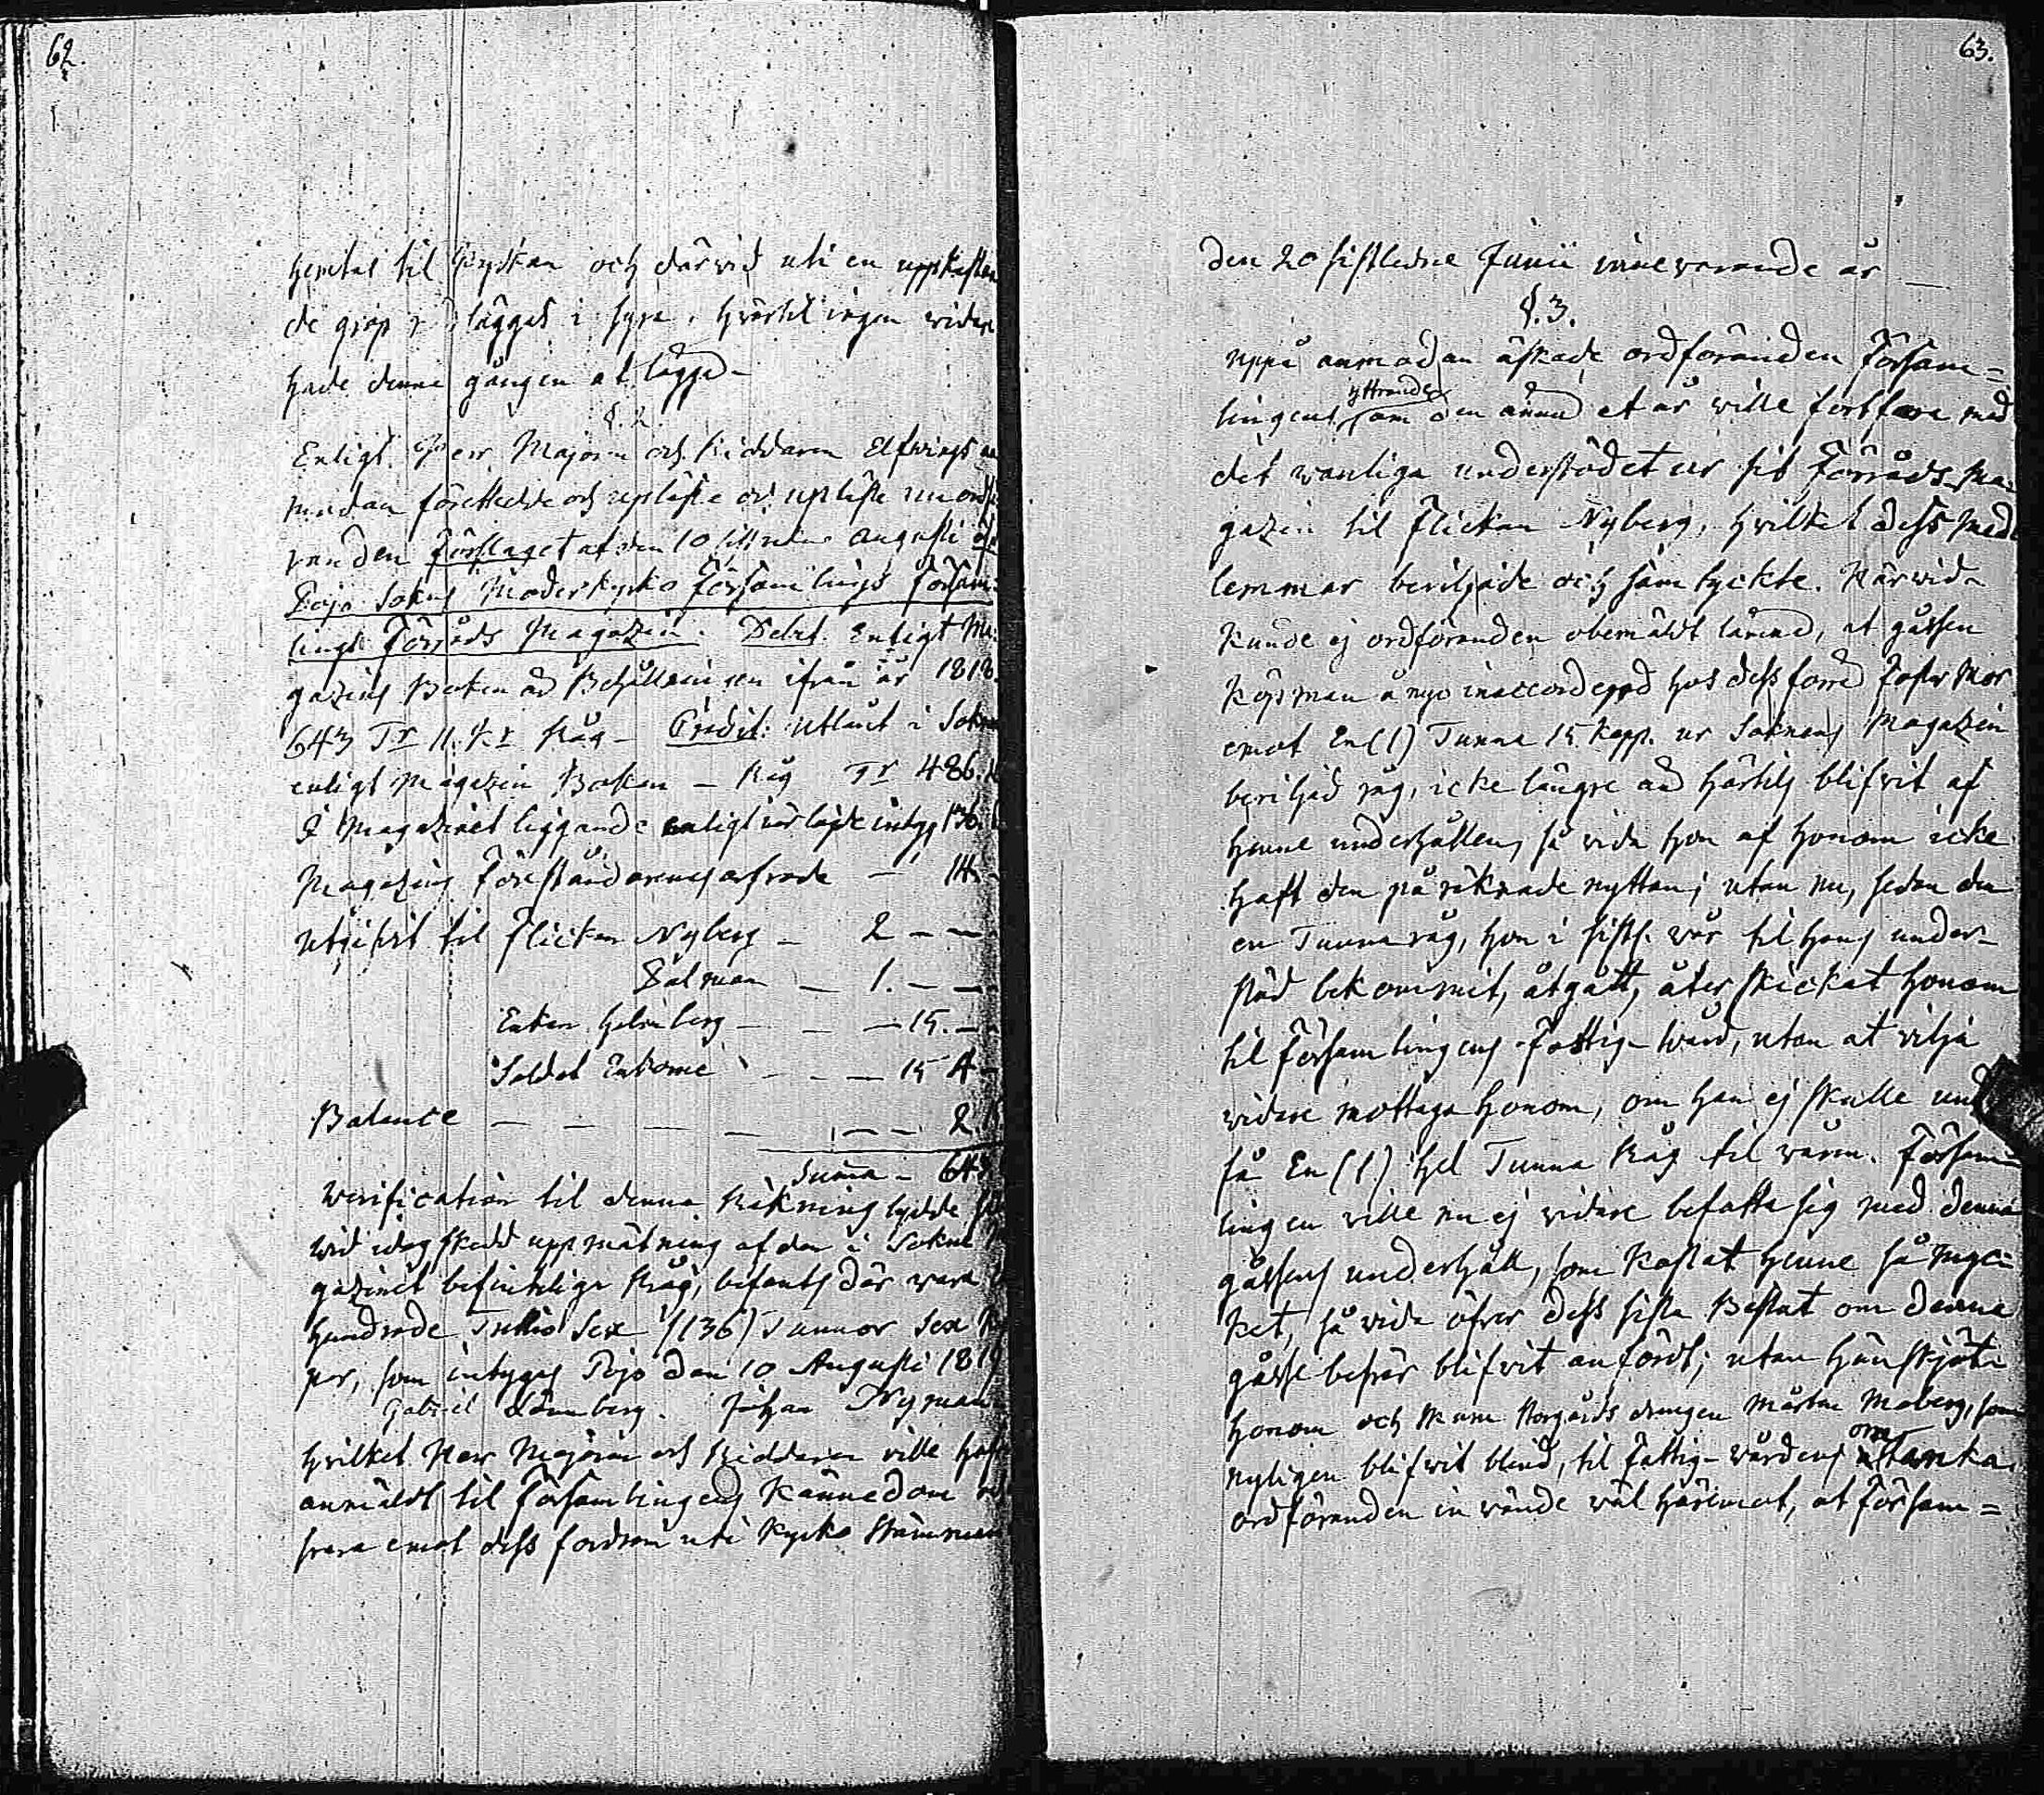 62.
hemtas til Kyrkan och därwid uti en uppkastan
de grop läggas i fyra, hvartil ingen widare
hade denna gången at lägga
§. 2.
Enligt Herr Majoren och Riddaren Elfvings an
modan föreställde och upläste och upläste nu ordfö
randen Förslaget af den 10 Augusti öf
Pojo Sokns Moderkyrko Församlings Försam-
lings Förråds Magazin. Debet. Enligt Ma-
gazins Boken är Behållningen ifrån år 1818.
643 Tr 11. kr Råg - Credit: Utlånt i Sokn
enligt Magazin Boken - Råg Tr 486.
I Magazinet liggande enligt närlagde intyg 136.
Magazins Föreståndarenas arfvode - 14.
Utgifvit til flickan Nyberg - 2 - -
Dalman - 1. - -
Enkan Holmberg - - - 15. - -
Soldat Enkorne - - - 15 4 -
Balance - - - - - - - 2.
Suma - 643
Werification til denna Räkning lydde
wid idag skedd uppmätning af den i Sokne M
gazinet befintlige Råg, befants där wara
Hundrade Trettio Sex (136) Tunnor Sex K
par, som intygas Pojo den 10 Augusti 1819
Gabriel Lönnberg. Johan Nyman
hvilket Herr Majoren och Riddaren ville hafva
anmäldt til Församlingens Kännedom och
svara emot dess fordran uti Kyrko Stämman
63.
den 20 sistledne Junii innevarande år
§. 3.
Uppå anmodan äskade ordföranden Försam=
lingens yttrande om den ännu et år wille fortfara med
det wanliga understödet ur sit Förråds Ma-
gazin til flickan Nyberg, hvilket dess Med
lemmar beviljade och samtyckte. Härwid
kunde ej ordföranden obemäldt lämna, at gåssen
Köpman å nyo inaccorderad hos dess förra Foster Mor
emot En (1) Tunna 15 Kapp. ur Soknens Magazin
beviljad råg, icke längre än härtils blifvit af
henne underhållen, så vida hon af honom icke
haft den på räknade nyttan; utan nu, sedan den
en Tunna råg, hon i sistl. wår til hans under-
stöd bekommit, åtgått, åter skickat honom
til Församlingens Fattig-wård, utan at vilja
widare mottaga honom, om han ej skulle und
få En (1) hel Tunna Råg til wåren. Försam-
lingen ville nu ej vidare befatta sig med denna
gåssens underhåll, som kostat henne så myc-
ket, så vida öfver dess sista Beslut om denna
gåsse besvär blifvit anfördt; utan hänskjöt
honom och Storgårds drengen Mårten Moberg, som
nyligen blifwit blind, til fattig-wårdens omtanka.
Ordföranden inwände wäl häremot, at Försam=